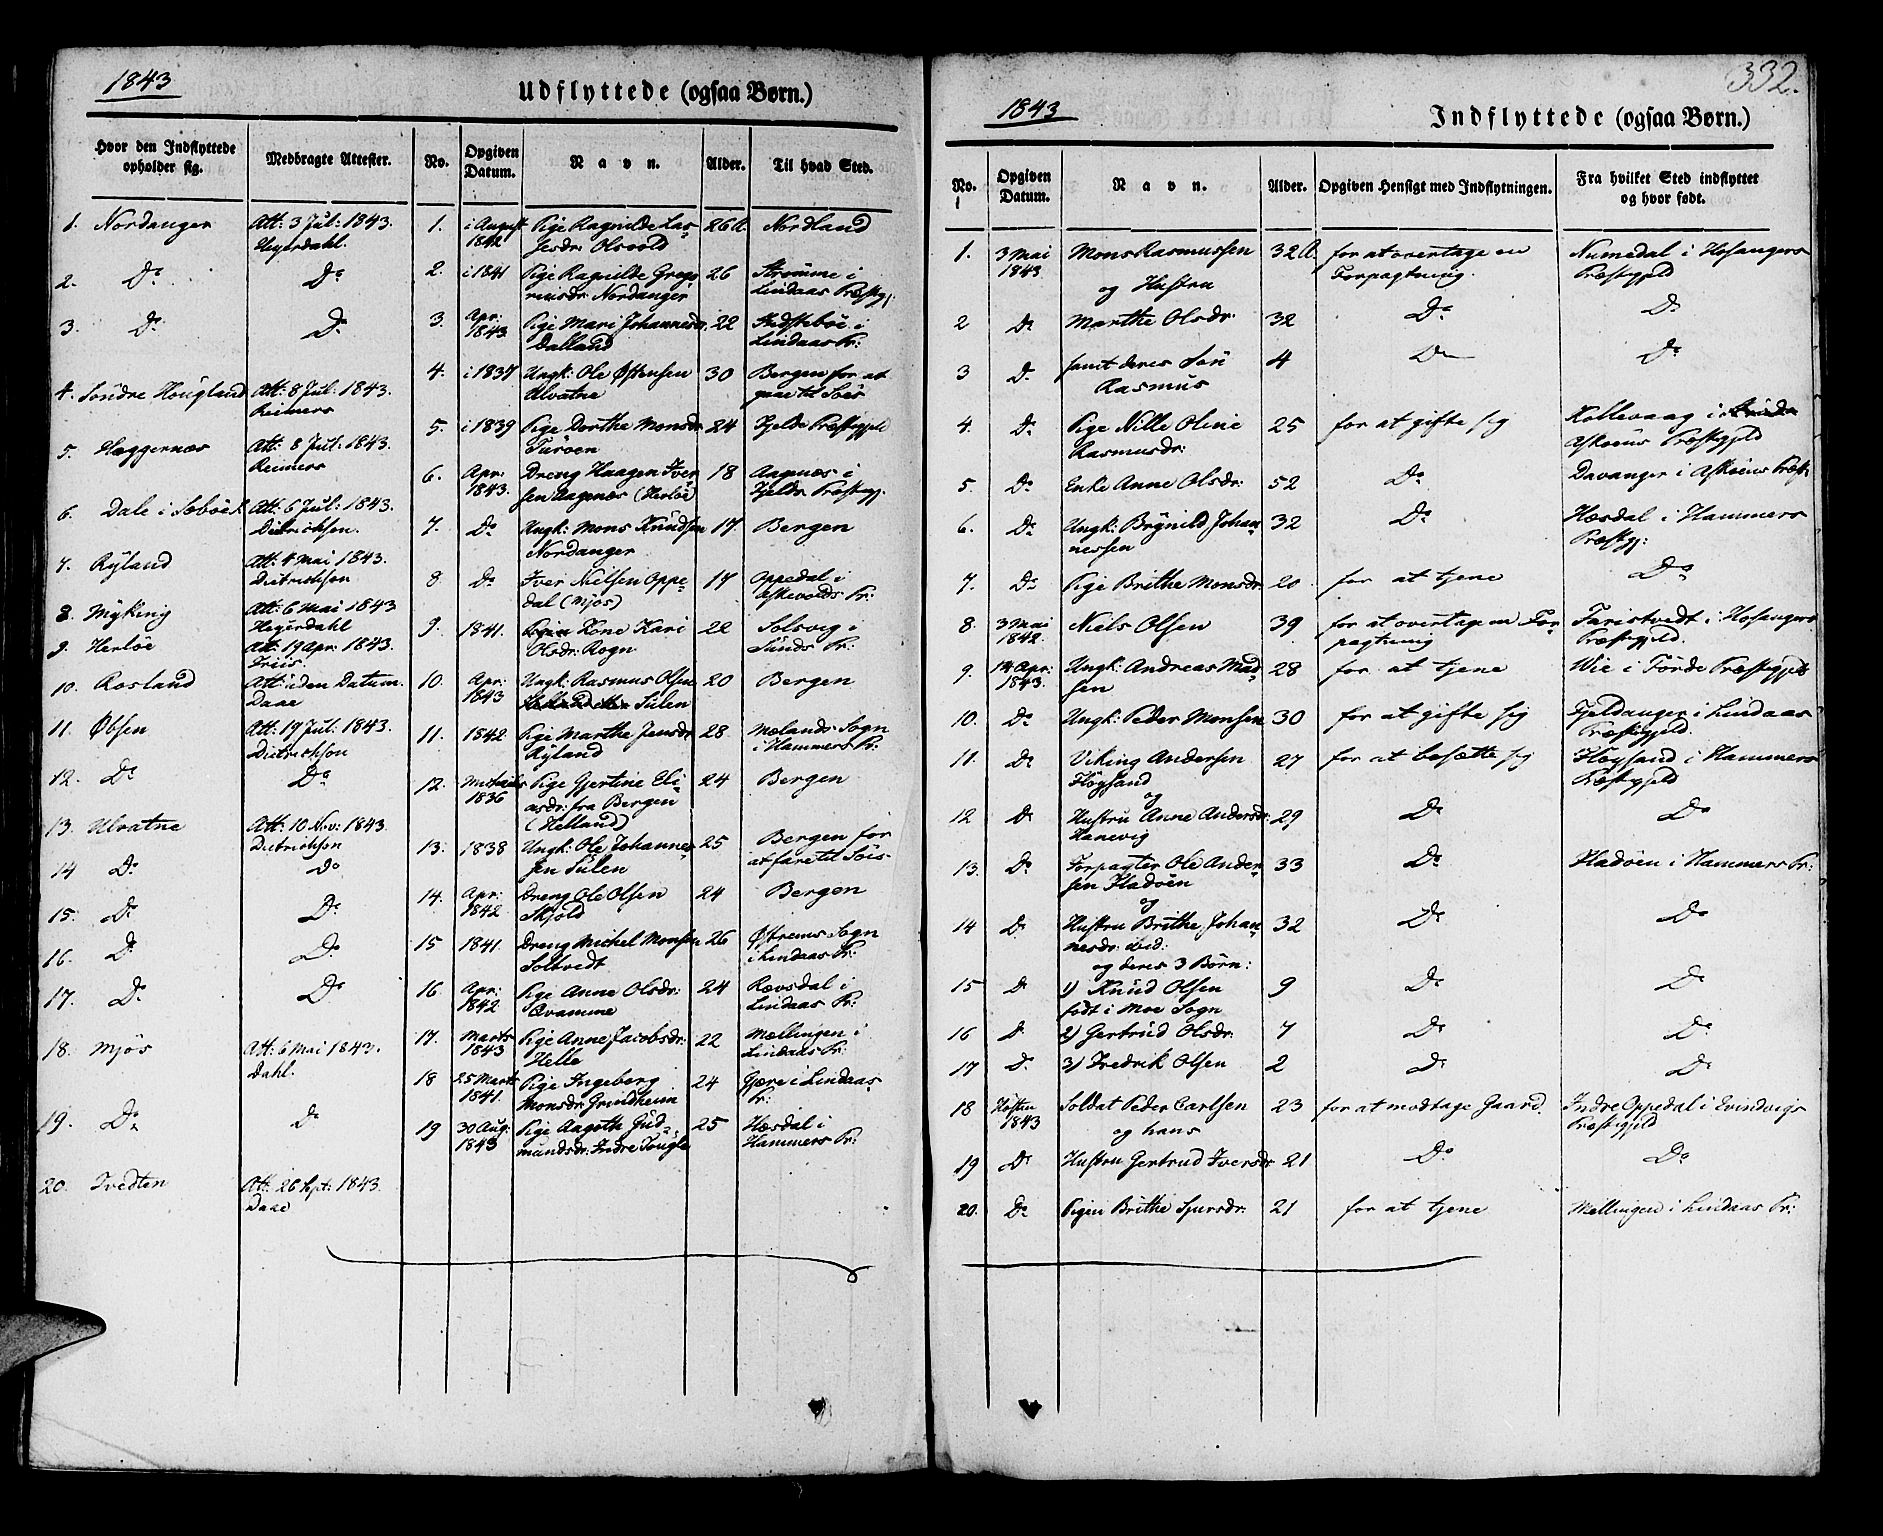 1843
Udflyttede (ogsaa Børn.)
Hvor den Indflyttede
opholder sig.
Medbragte Attester.
No.
Opgiven
Datum.
Navn.
Alder.
Til hvad Sted.
1. Nordanger
Att: 3 Jul: 1843.
Heyerdahl.
2. Do
Do
3. Do
Do
4. Söndre Hougland
Att: 8 Jul: 1843.
Reimers
5. Hæggernæs
Att: 8 Jul: 1843.
Reimers
6. Dale i Sæböe
Att: 6 Jul: 1843.
Dietrichson.
7. Ryland
Att: 4 Mai 1843.
Dietrichson
8. Myking
Att: 6 Mai 1843
Heyerdahl
9. Herlöe
Att: 19 Apr: 1843.
Friis.
10. Rosland
Att: uden Datum.
Daae
11. Øbsen
Att: 19 Jul: 1843.
Dietrichson
12. Do
Do
13. Ulvatne
Att: 10 Nov: 1843.
Dietrichson
14 Do
Do
15. Do
Do
16. Do
Do
17. Do
Do
18. Mjös
Att: 6 Mai 1843.
Dahl.
19. Do
Do
20. Tvedten
Att: 26 Spt: 1843.
Daae
1. i August Pige Ragnilde Las- 26 A. Nordland
1842 sesdr: Olsvold
2. i 1841 Pige Ragnilde Grego 26 Strömme i
riusdr: Nordanger Lindaas Præstegj:
3. Apr: Pige Mari Johannesdr: 22
1843. Dalland Lindaas Pr:
4. i 1837 Ungk: Ole Østensen 30 Bergen for at
Ulvatne gaae til Söes
5. i 1839 Pige Dorthe Monsdr: 24 Fjelds Præstegjeld
Turöen
6. Apr: Dreng Haagen Iver 18 Aagnæs i
1843. sen Aagnæs (Herlöe) Fjelds Præstegj.
7. Do Ungk: Mons Knudsen 17 Bergen
Nordanger
8 Do Iver Nielsen Oppe 17 Oppedal i
dal (Mjös) Askevolds Pr:
9. 1841. Kone Kari 22 Solsvig i
Olsdr: Rogn Sunds Pr:
10. Apr: Ungk: Rasmus Olsen 20 Bergen
1843 Sulen
11. 1842 Pige Marthe Jensdr: 28. Mælands Sogn
Ryland i Hammers Pr:
12. Michaelis Pige Gjertine Eli- 24 Bergen
1836 asdr: fra Bergen
(Helland)
13. 1838 Ungk: Ole Johannes- 25 Bergen for
sen Sulen at fare til Söis
14. Apr: Dreng Ole Olsen 24 Bergen
1842 Skjold
15 1841. Dreng Michel Monsen 26 Østrems Sogn
Soltvedt i Lindaas Pr:
16 Apr: Pige Anne Olsdr: 24 Rævsdal i
1842 Qvamme Lindaas Pr:
17. Marts Pige Anne Jacobsdr: 22 Mellingen i
1843 Helle Lindaas Pr:
18 25 Marts Pige Ingeborg 24 Gjære i Lindaas
1841. Monsdr: Grindheim Pr:
19 30 Aug: Pige Aagoth Gud- 25 Hæsdal i
1843 mundsdr: Indre Hammers Pr:
332.
1843
Indflyttede (ogsaa Børn.)
No.
Opgiven
Datum.
Navn.
Alder.
Opgiven Hensigt med Indflytningen.
Fra hvilket Sted indflyttet
og hvor født.
1. 3 Mai Mons Rasmussen 32 A. for at overtage en Numedal i Hosangers
1843 og Hustru Forpagtning. Præstegjeld
2 Do Marthe Olsdr: 32 Do Do
3 Do samt deres Sön 4 Do Do
Rasmus
4. Do Pige Nille Oline 25 for at gifte sig Kollevaag i
Rasmusdr: Askøens Præstegjeld
5. Do Enke Anne Olsdr: 52 Do Davanger i Askøens Præst
6. Do Ungk: Brynild Johan- 32 Do Hæsdal i Hammers
nessen Præstegj:
7. Do Pige Brithe Monsdr: 20 for at tjene Do
8. 3 Mai Niels Olsen 39 for at overtage en For- Taristvedt i Hosangers
1842. pagtning Præstegjeld.
9. 14 Apr: Ungk: Andreas Mad- 28 for at tjene Wie i Förde Præstegjeld
1843. sen
10. Do Ungk: Peder Monsen 30 for at gifte sig Fjeldanger i Lindaas
Præstegjeld.
11. Do Viking Andersen 27 for at besætte sig Höysand i Hammers
Flöysand Præstegjeld
og
12 Do Hustru Anne Andersdr: 29 Do Do
Hanevig
13. Do Forpagter Ole Ander- 33 Do Fladöen i Hammers Pr:
sen Fladöen
og
14 Do Hustru Brithe Johan- 32 Do Do
nesdr: ibid:
og deres 3 Börn:
15 Do 1) Knud Olsen 9 Do Do
födt i Moe Sogn
16 Do 2) Gertrud Olsdr: 7 Do Do
17 Do 3) Fredrik Olsen 2 Do Do
18 Hösten Soldat Peder Carlsen 23 for at modtage Gaard. Indre Oppedal i Evindvigs
1843 og hans Præstegjeld
19 Do Hustru Gertrud Iversdr: 21 Do Do
20. Do Pigen Brithe Sjursdr: 21 for at tjene Mellingen i Lindaas Pr: